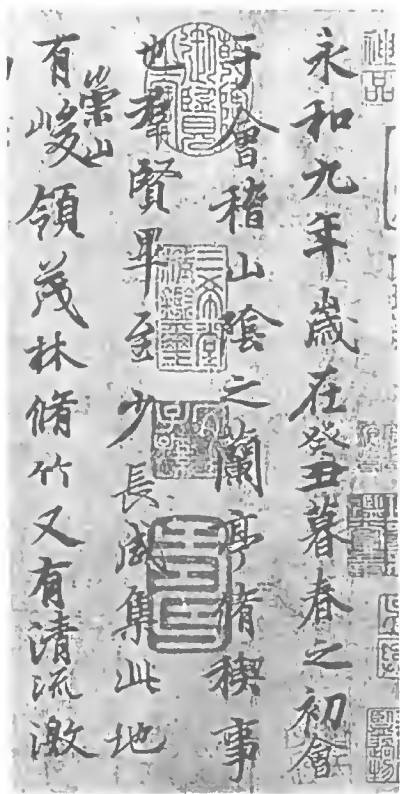 永和九年歲在癸丑暮春之初會
于會稽山陰之蘭亭脩稧事
也羣賢畢至少長咸集此地
有崇山峻領茂林脩竹又有清流激
神品
三希堂精鑑璽
宜子孫